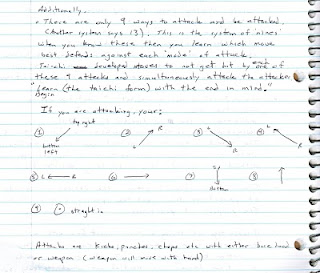 Additionally,
• There are only 9 ways to attack and be attacked.
(Another system says 13). This is the system of 'nines'
when you know these then you learn which move
best defends against each 'mode' of attack.
Taichi developed moves to not get hit by each one of
these 9 attacks and simultaneously attack the attacker
"Learn (the taichi form) with the end in mind."
Begin
If you are attacking, your:
① top right
bottom left
② L R
③ L R
④ L R
⑤ L R
⑥
⑦
bottom
⑧
⑨ straight in
Attacks are Kicks, punches, chops, etc with either bare hand
or weapon (weapon will move with hand)